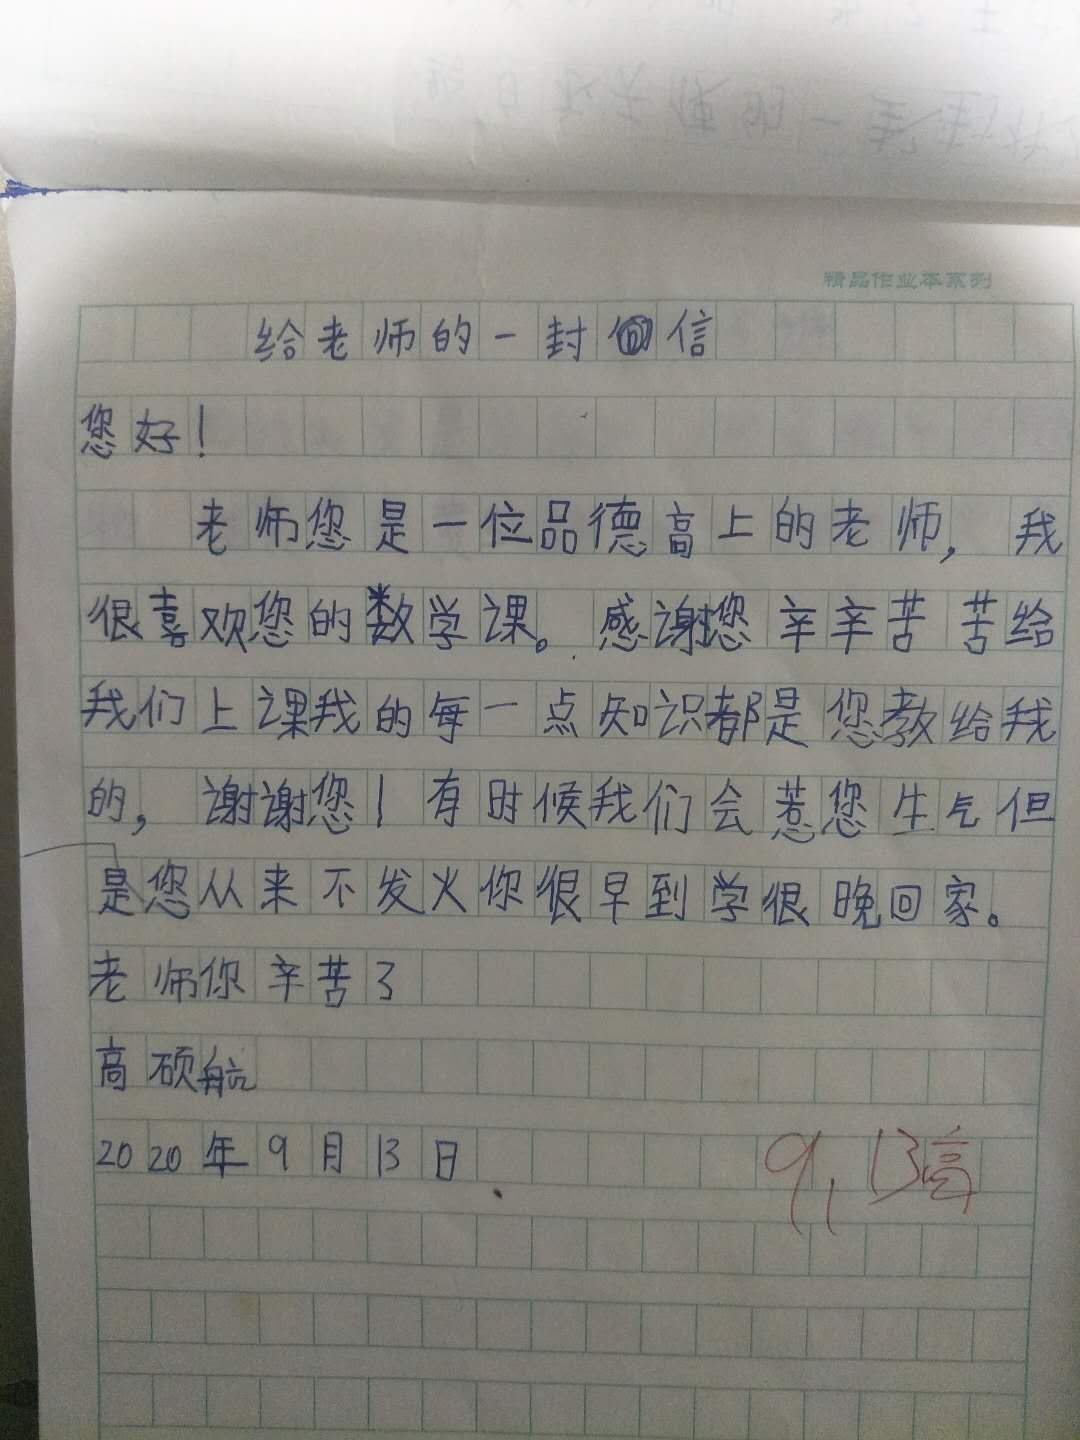 精品作业本系列
给老师的一封信
您好！
老师您是一位品德高上的老师，我
很喜欢您的数学课。感谢您辛辛苦苦给
我们上课我的每一点知识都是您教给我
的，谢谢您！有时候我们会惹您生气但
是您从来不发火你很早到学很晚回家。
老师你辛苦了
高硕航
2020年9月13日
9,13高